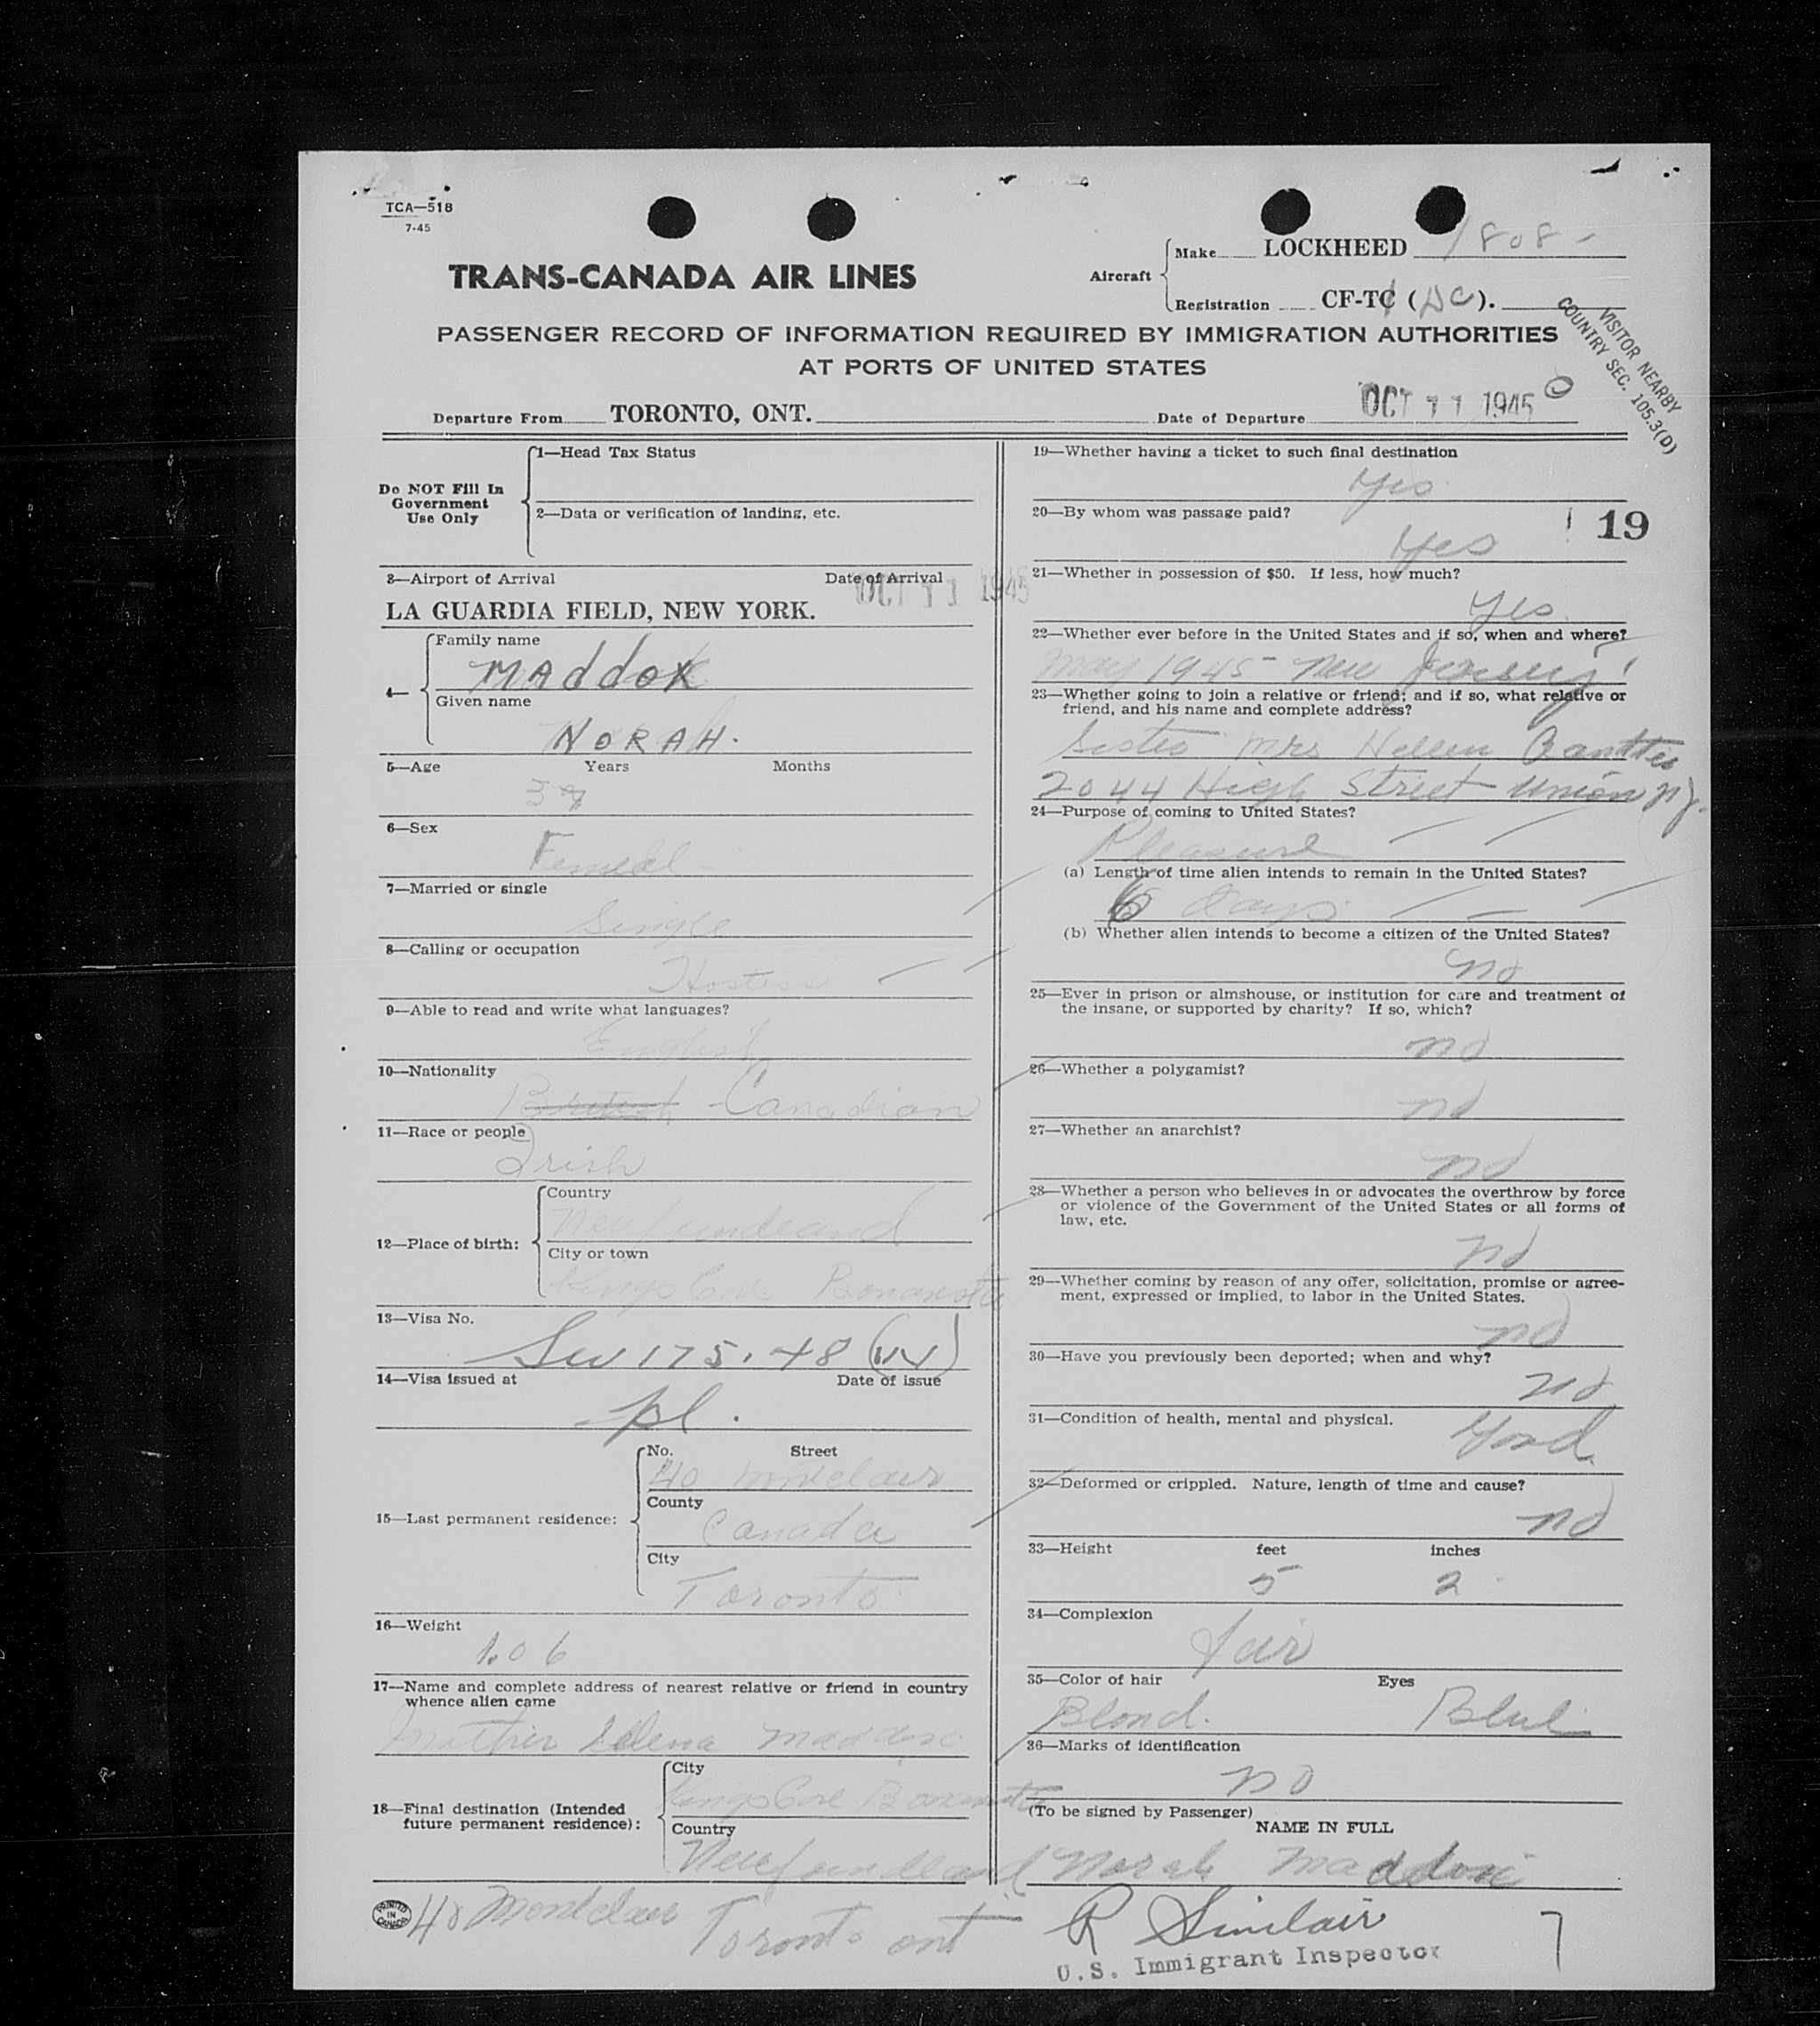 TCA—518
7-45
TRANS-CANADA AIR LINES
Aircraft
Make LOCKHEED 1808 -
Registration CF-TC (DC).
PASSENGER RECORD OF INFORMATION REQUIRED BY IMMIGRATION AUTHORITIES
AT PORTS OF UNITED STATES
VISITOR NEARBY
COUNTRY SEC. 105.3(D)
Departure From TORONTO, ONT. Date of Departure OCT 11 1945
Do NOT Fill In
Government
Use Only
1—Head Tax Status
2—Data or verification of landing, etc.
3—Airport of Arrival Date of Arrival
OCT 11 1945
LA GUARDIA FIELD, NEW YORK.
4—
Family name
MAddOX
Given name
NORAH.
5—Age Years Months
6—Sex
Femeal
7—Married or single
Single
8—Calling or occupation
Hostess
9—Able to read and write what languages?
English
10—Nationality
British Canadian
11—Race or people
Irish
12—Place of birth:
Country
Newfundland
City or town
Kings Cove Bonavista
13—Visa No.
Sec 175.48
14—Visa issued at Date of issue
pl.
15—Last permanent residence:
No. Street
40 Montclair
County
Canada
City
Toronto
16—Weight
106
17—Name and complete address of nearest relative or friend in country
whence alien came
Mother Maddox
18—Final destination (Intended
future permanent residence):
City
Kings Cove Bonavista
Country
Newfoundland
PRINTED
IN
CANADA
40 Montclair Toronto ont
19—Whether having a ticket to such final destination
Yes
20—By whom was passage paid?
19
Yes
21—Whether in possession of $50. If less, how much?
Yes
22—Whether ever before in the United States and if so, when and where?
May 1945 - New Jersey
23—Whether going to join a relative or friend; and if so, what relative or
friend, and his name and complete address?
Sister Mrs Hellen
2044 High Street Union NJ.
24—Purpose of coming to United States?
Pleasure
(a) Length of time alien intends to remain in the United States?
Days
(b) Whether alien intends to become a citizen of the United States?
no
25—Ever in prison or almshouse, or institution for care and treatment of
the insane, or supported by charity? If so, which?
no
26—Whether a polygamist?
no
27—Whether an anarchist?
no
28—Whether a person who believes in or advocates the overthrow by force
or violence of the Government of the United States or all forms of
law, etc.
no
29—Whether coming by reason of any offer, solicitation, promise or agree-
ment, expressed or implied, to labor in the United States.
no
30—Have you previously been deported; when and why?
no
31—Condition of health, mental and physical.
Good
32—Deformed or crippled. Nature, length of time and cause?
no
33—Height feet inches
5 2
34—Complexion
fair
35—Color of hair Eyes
Blond. Blue
36—Marks of identification
no
(To be signed by Passenger)
NAME IN FULL
Norah Maddox
R Sinclair
U.S. Immigrant Inspector
7